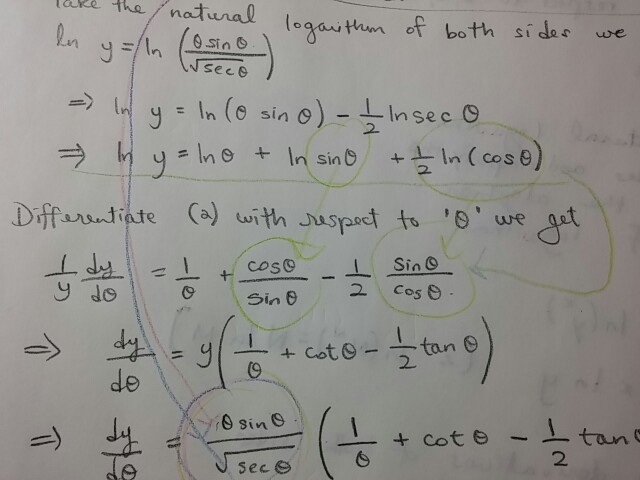 Take the natural logarithm of both sides we
ln y = ln (θ sin θ / √sec θ)
⇒ ln y = ln (θ sin θ) − 1/2 ln sec θ
⇒ ln y = ln θ + ln sin θ + 1/2 ln (cos θ)
Differentiate (2) with respect to 'θ' we get
1/y dy/dθ = 1/θ + cos θ / sin θ − 1/2 sin θ / cos θ.
⇒ dy/dθ = y (1/θ + cot θ − 1/2 tan θ)
⇒ dy/dθ = θ sin θ / √sec θ (1/θ + cot θ − 1/2 tan θ